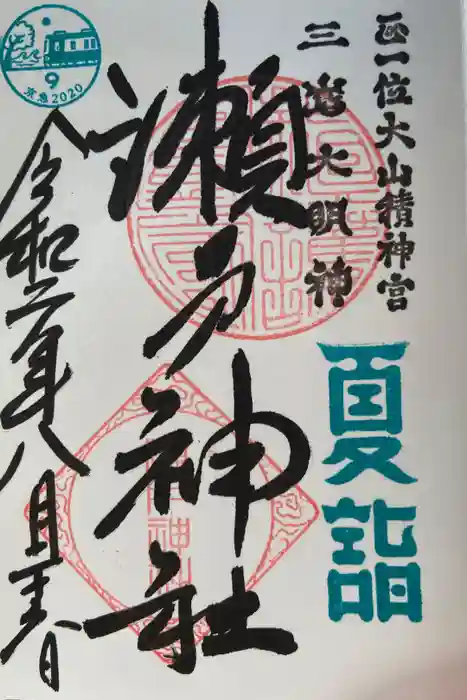 正一位大山積神宮
三嶋大明神
夏詣
瀬戸神社
令和二年八月
9
京急2020